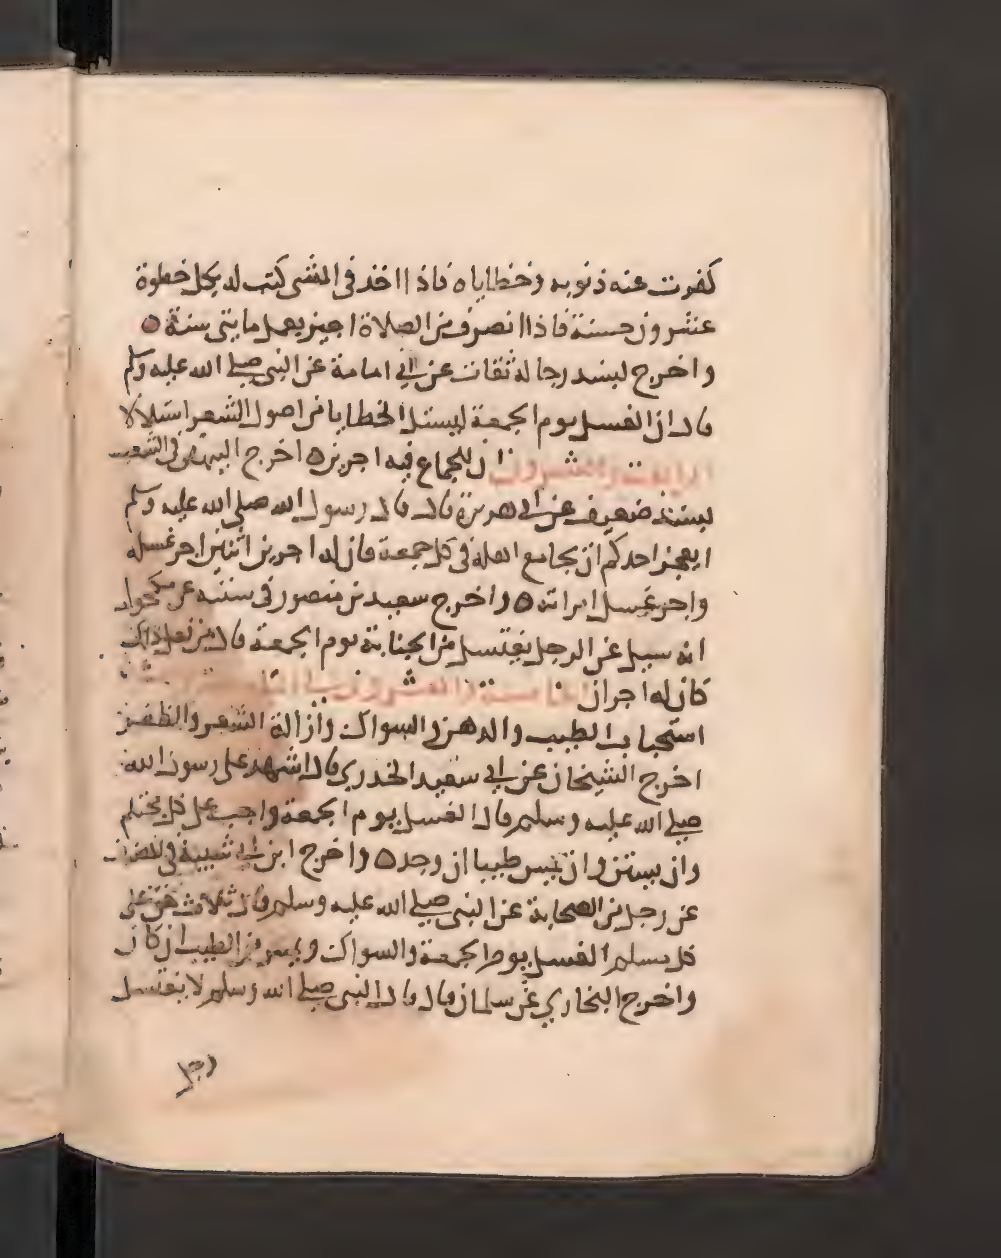 كفرت عنه ذنوبه وخطاياه فاذا اخذ فى المشى كتب له بكل خطوة
عشرون حسنة فاذا انصرف من الصلاة اجيز بعمل مايتى سنة ٥
واخرج بسند رجاله ثقات عن ابي امامة عن النبى صلى الله عليه وسلم
قال ان الغسل يوم الجمعة ليستل الخطايا من اصول الشعر استلالا
الرابعة والعشرون ان للجماع فيه اجرين ٥ اخرج البيهقى فى الشعب
بسند ضعيف عن ابي هريرة قال قال رسول الله صلى الله عليه وسلم
ايعجز احدكم ان يجامع اهله فى كل جمعة فان له اجرين اثنين اجر غسله
واجر غسل امراته ٥ واخرج سعيد بن منصور فى سننه عن مكحول
انه سيل عن الرجل يغتسل من الجنابة يوم الجمعة قال من فعل ذلك
كان له اجران الخامسة والعشرون
استحباب الطيب والدهن والسواك وازالة الشعر والظفر
اخرج الشيخان عن ابي سعيد الخدري قال اشهد على رسول الله
صلى الله عليه وسلم قال الغسل يوم الجمعة واجب على كل محتلم
وان يستن وان يمس طيبا ان وجد ٥ واخرج ابن ابي شيبة فى المصنف
عن رجل من الصحابة عن النبى صلى الله عليه وسلم قال ثلاث حق على
كل مسلم الغسل يوم الجمعة والسواك ويمس من الطيب ان كان
واخرج البخاري عن سلمان قال قال النبى صلى الله وسلم لا يغتسل
رجل